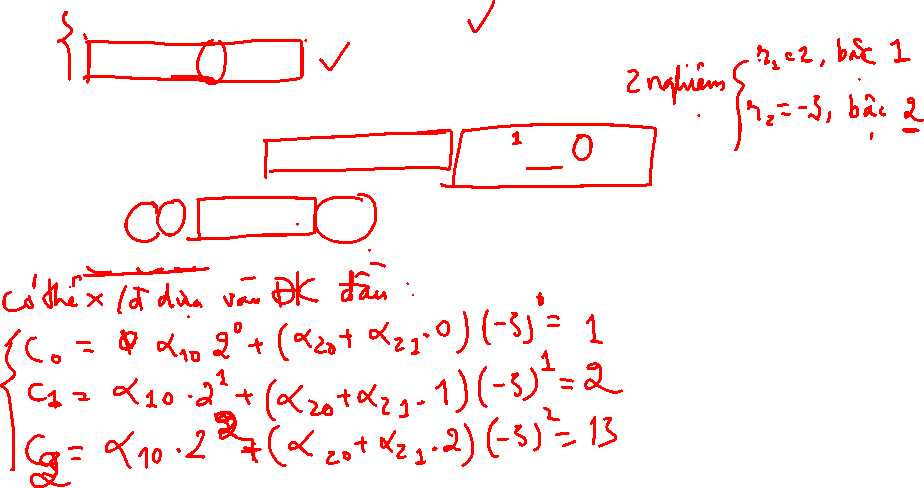 2 nghiệm { r₁ = 2, bậc 1
r₂ = -3, bậc 2
1 _ 0
Có thể x/đ dựa vào ĐK đầu:
C₀ = α₁₀ 2⁰ + (α₂₀ + α₂₁.0)(-3)⁰ = 1
C₁ = α₁₀.2¹ + (α₂₀ + α₂₁.1)(-3)¹ = 2
C₂ = α₁₀.2² + (α₂₀ + α₂₁.2)(-3)² = 13